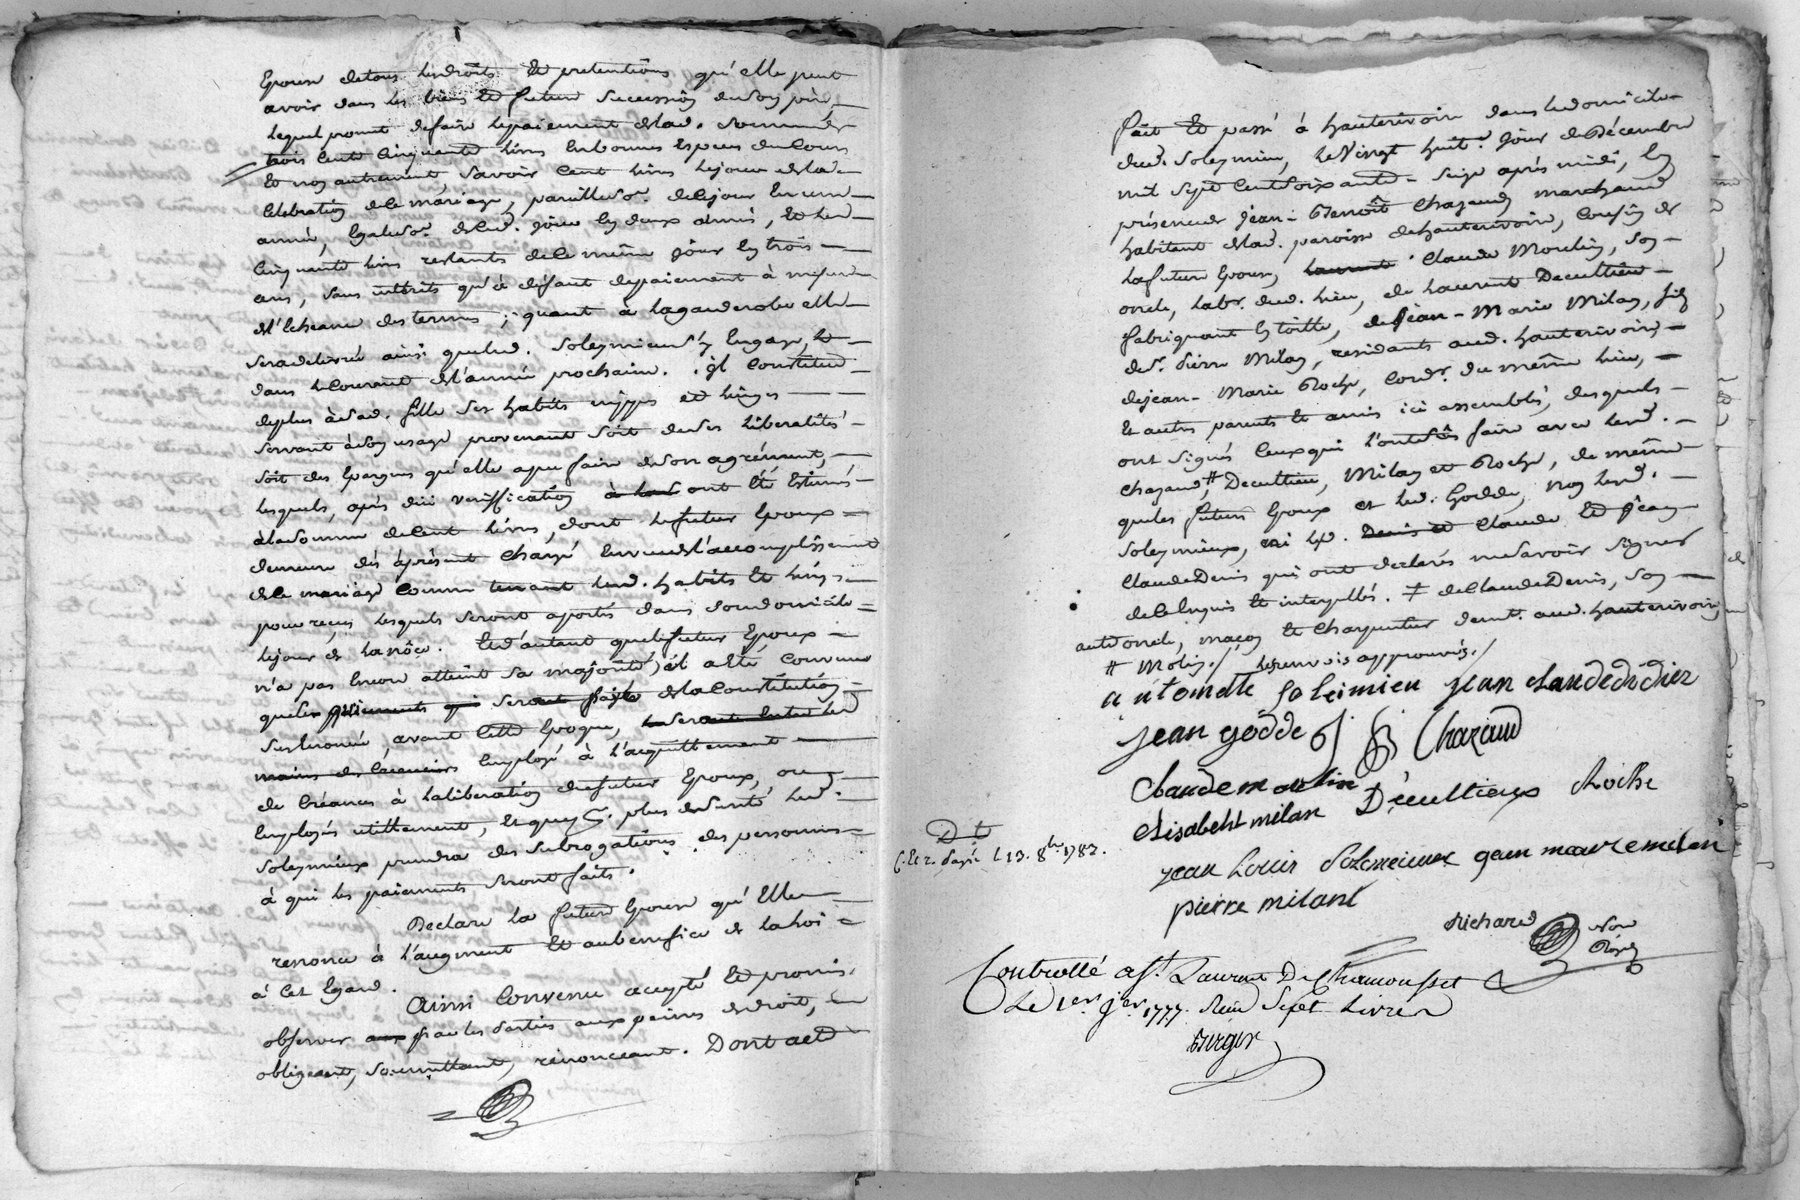 Epouse de tous les droits Et pretentions qu'elle peut
avoir dans les biens Et future Succession de Son père,
lequel promet de faire le paiement de lad. Somme de
trois Cents Cinquante livres En bonnes Especes du Cours
Et non autrement, Savoir Cent livres le jour de la
Celebration de ce mariage, pareille So.e de ce jour En une
année, Egale So.e dud. jour En deux années, Et les
Cinquante livres restants de ce même jour En trois
ans, Sans intérêts qu'à défaut de paiement à mesure
de l'Echeance des termes; quant à la garderobe elle
Sera delivrée ainsi que led. Soleymieux S'y Engage,
dans le Courant de l'année prochaine. il Constitue
de plus à Sad. fille Ses habits nippes et linges
Servant à Son usage provenant Soit de Ses libéralités
Soit des Epargnes qu'elle a pu faire de Son agrément,
lesquels, après düe verification ont Eté Estimés
à la Somme de Cent livres, dont le futur Epoux
demeure dès àprésent Chargé En vue de l'accomplissement
de ce mariage Comme tenant lesd. habits Et linges
pour reçus, lesquels Seront aportés dans Son domicile
le jour de la nôce. Et d'autant que le futur Epoux
n'a pas Encore atteint Sa majorité, il a Eté Convenu
que les paiements qui Seront faits de la Constitution
Susénoncée, avant cette Epoque,
mains des Créanciers Employés à l'acquittement
de Créances à la libération du futur Epoux, ou
Employés utillement, Et que p.r plus de Sureté led.
Soleymieux prendra des Subrogations des personnes
à qui les paiements Seront faits.
Declare la future Epouse qu'Elle
renonce à l'augment Et au benefice de la loi
à Cet Egard.
Ainsi Convenu accepté Et promis
observer par les Parties aux peines de droit,
obligeant, Soumettant, rénonceant. Dont acte
Fait Et passé à hauterivoire dans le domicile
dud. Soleymieu, le Vingt huit.e jour de Décembre
mil Sept Cent Soixante - Seize après midi, En
présence de jean-Benoît Chazaud marchand
habitant de lad. paroisse de hauterivoire, Cousin de
la future Epouse, Claude Moulin, Son
oncle, lab.r dud. lieu, de Laurent Decultieux
fabriquant En toille, de Jean-Marie Milan, fils
de S.r Pierre Milan, residants aud. hauterivoire,
de jean-Marie Roche, Cord.r du même lieu,
Et autres parents Et amis ici assemblés, desquels
ont Signés Ceux qui l'ont Sçu faire avec lesd.
Chazaud,# Decultieux, Milan et Roche, de même
que les futurs Epoux et led. Godde, non lesd.
Soleymieux, ni led. Denis et Claude Et Jean
Claude Denis qui ont declarés ne Savoir Signer
de ce Enquis Et interpellés. ≠ de Claude Denis, Son
autre oncle, maçon Et Charpentier demt. aud. hauterivoire
# Molin./ les renvois approuvés./
antoinette Soleimieu jean Claude didier
jean gödde Chazaud
Claude moulin
Elisabeht milan Décultieux Roche
jean Louis Soleimieux jean marie milan
pierre milant
Richard Not.
Roy.
Dt
C. Et 2. Payé L 13. 8.bre 1783.
Controllé a St. Laurent De Chamousset
Le 1er. j.er 1777. Reçu Sept Livres
Burger